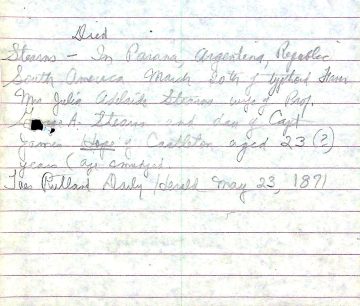 Died
Stearns - In Parana, Argentina, Republic
South America March 20th of typhoid fever
Mrs Julia Adelaide Stearns wife of Prof.
George A. Stearns and dau of Capt
James Hope of Castleton aged 23 (?)
years (age smudged.
Rutland Daily Herald May 23, 1871